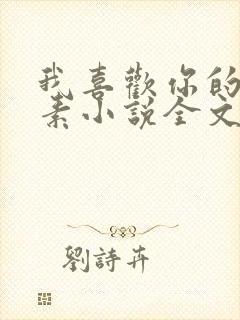 我喜歡你的
素小說全文
劉詩卉